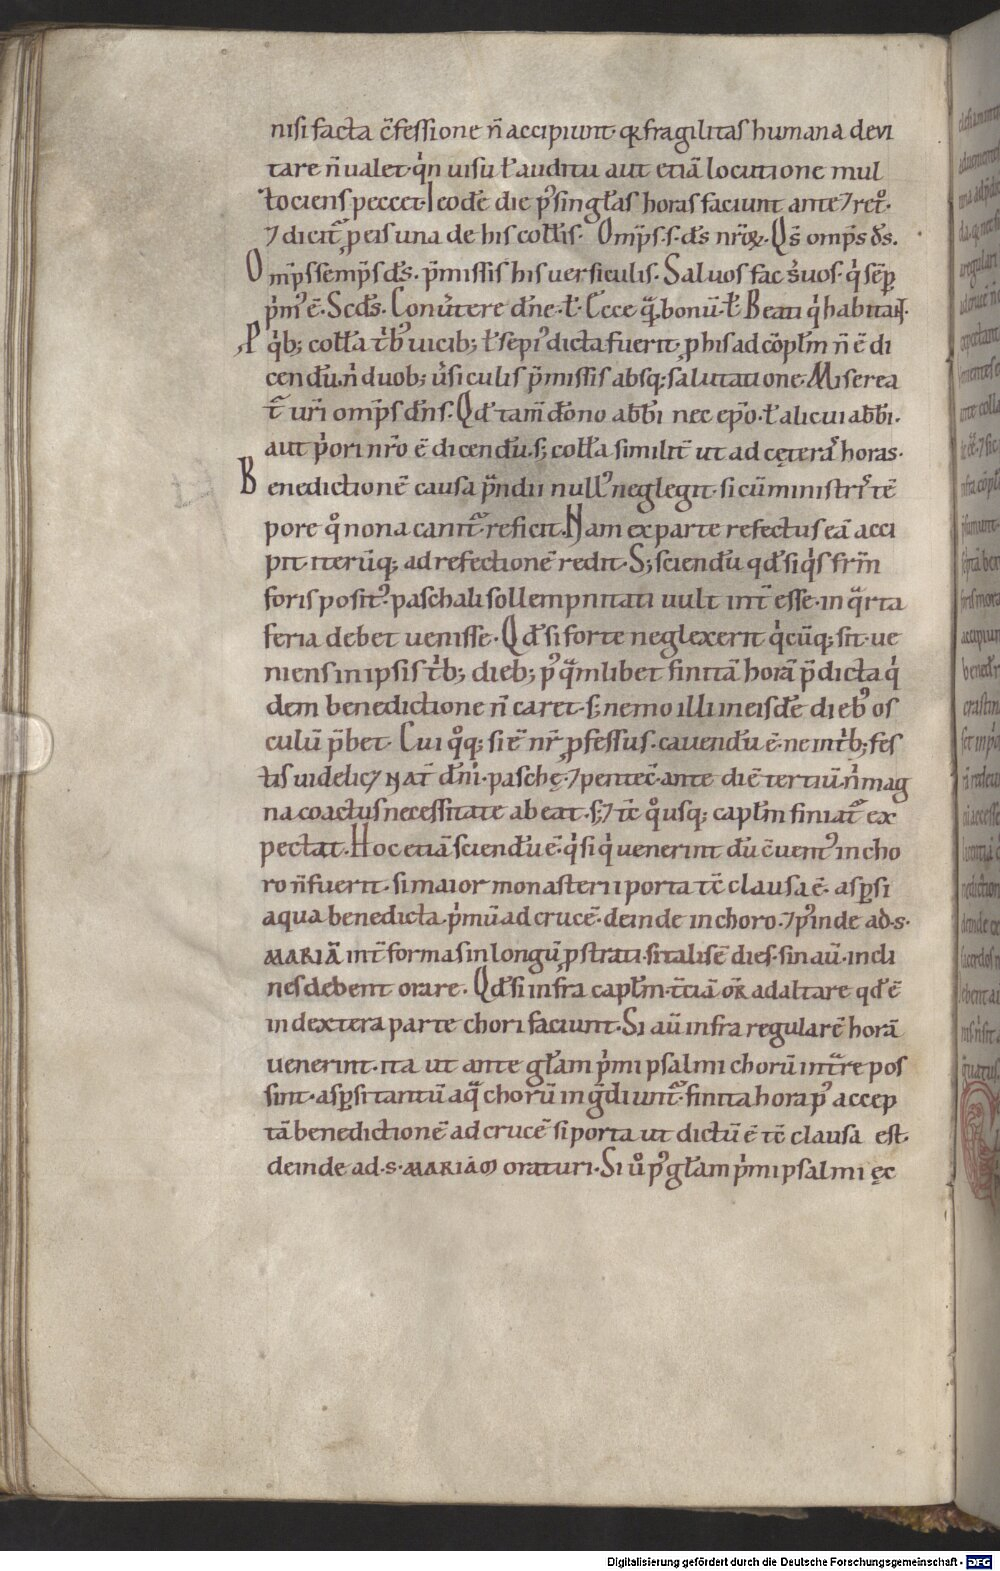 nisi facta c̄fessione n̄ accipiunt· qꝛ fragilitas humana devi
tare n̄ ualet· qͥn uisu ł auditu aut etiā locutione mul
tociens peccet· Ieodē die p̄ singłas horas faciunt ante ⁊ retͦ·
⁊ dicit᷑ ꝓ eis una de his coll̄is· Omp̄s· s· ds̄ nr̄oꝝ· Qs̄ omp̄s ds̄.
Omp̄s semp̄s ds̄· p̄missis his uersiculis· Saluos fac s̉uos· qͥ sēꝑ
pͥmꝰ ē· Sc̄ds· Conủtere dn̄e· ł· Ecce qͣꝫ bonū· ł· Beati qͥ habitaꝴ·
Pqͥb; coll̄a tͥbꝰ uicib; ł sepiꝰ dicta fuerit· ꝓ his ad cōpłm n̄ ē di
cendū· n̄ duob; ủsiculis p̄missis absq; salutatione· Miserea
t᷑ ur̄i omp̄s dn̄s· Qd̄ tam̄ dōno abb̄i nec ep̄o· ł alicui abb̄i·
aut pͥori nr̄o ē dicendū· s; coll̄a similit̄ ut ad cęteraſ horas·
Benedictionē causa p̄ndii nullꝰ neglegit· si cū ministrͬ tē
pore qͦ nona canit᷑ reficit· Nam ex parte refectus eā acci
pit iterūq; ad refectionē redit· S; sciendū qd̄ si qͥs fr̄m
foris positꝰ paschali sollempnitati uult int̄ esse· in qͣrta
feria debet uenisse· Qd̄ si forte neglexerit qͥcūq; sit· ue
niens in ipsis tͥb; dieb; pꝰ qͣmlibet finitā horā p̄dicta qͥ
dem benedictione n̄ caret· s; nemo illi in eisdē diebꝰ os
culū p̄bet· Cui qͦq; si ē nr̄ ꝓfessus· cauendū ē· ne in tͥb; fes
tis uidelic⁊ NAT̄ dn̄i· paschę· ⁊ pentec̄· ante diē tertiū· n̄ mag
na coactus necessitate abeat· s; ⁊ tc̄ qͦusq; capłm finiat᷑ ex
pectat· Hoc etiā sciendū ē· qͥ si qͥ uenerint dū c̄uentꝰ in cho
ro n̄ fuerit· si maior monasterii porta tc̄ clausa ē· aspsi
aqua benedicta· pͥmū ad crucē· deinde in choro· ⁊ pꝰinde ad· s·
MARIĀ int̄ formas in longū ꝓstrati· si talis ē dies· sin aū· incli
nes debent orare· Qd̄ si infra capłm· t̄ciā or̄ ad altare qd̄ ē
in dextera parte chori faciunt· Si aū infra regularē horā
uenerint· ita ut ante głam pͥmi psalmi chorū intͣre pos
sint· aspsi tantū aqͣ chorū ingͣdiunt᷑· finita hora pꝰ accep
tā benedictionē ad crucē si porta ut dictū ē tc̄ clausa est·
deinde ad· s· MARIAM oraturi· Si ů pꝰ głam pͥmi psalmi ęc
Digitalisierung gefördert durch die Deutsche Forschungsgemeinschaft - DFG